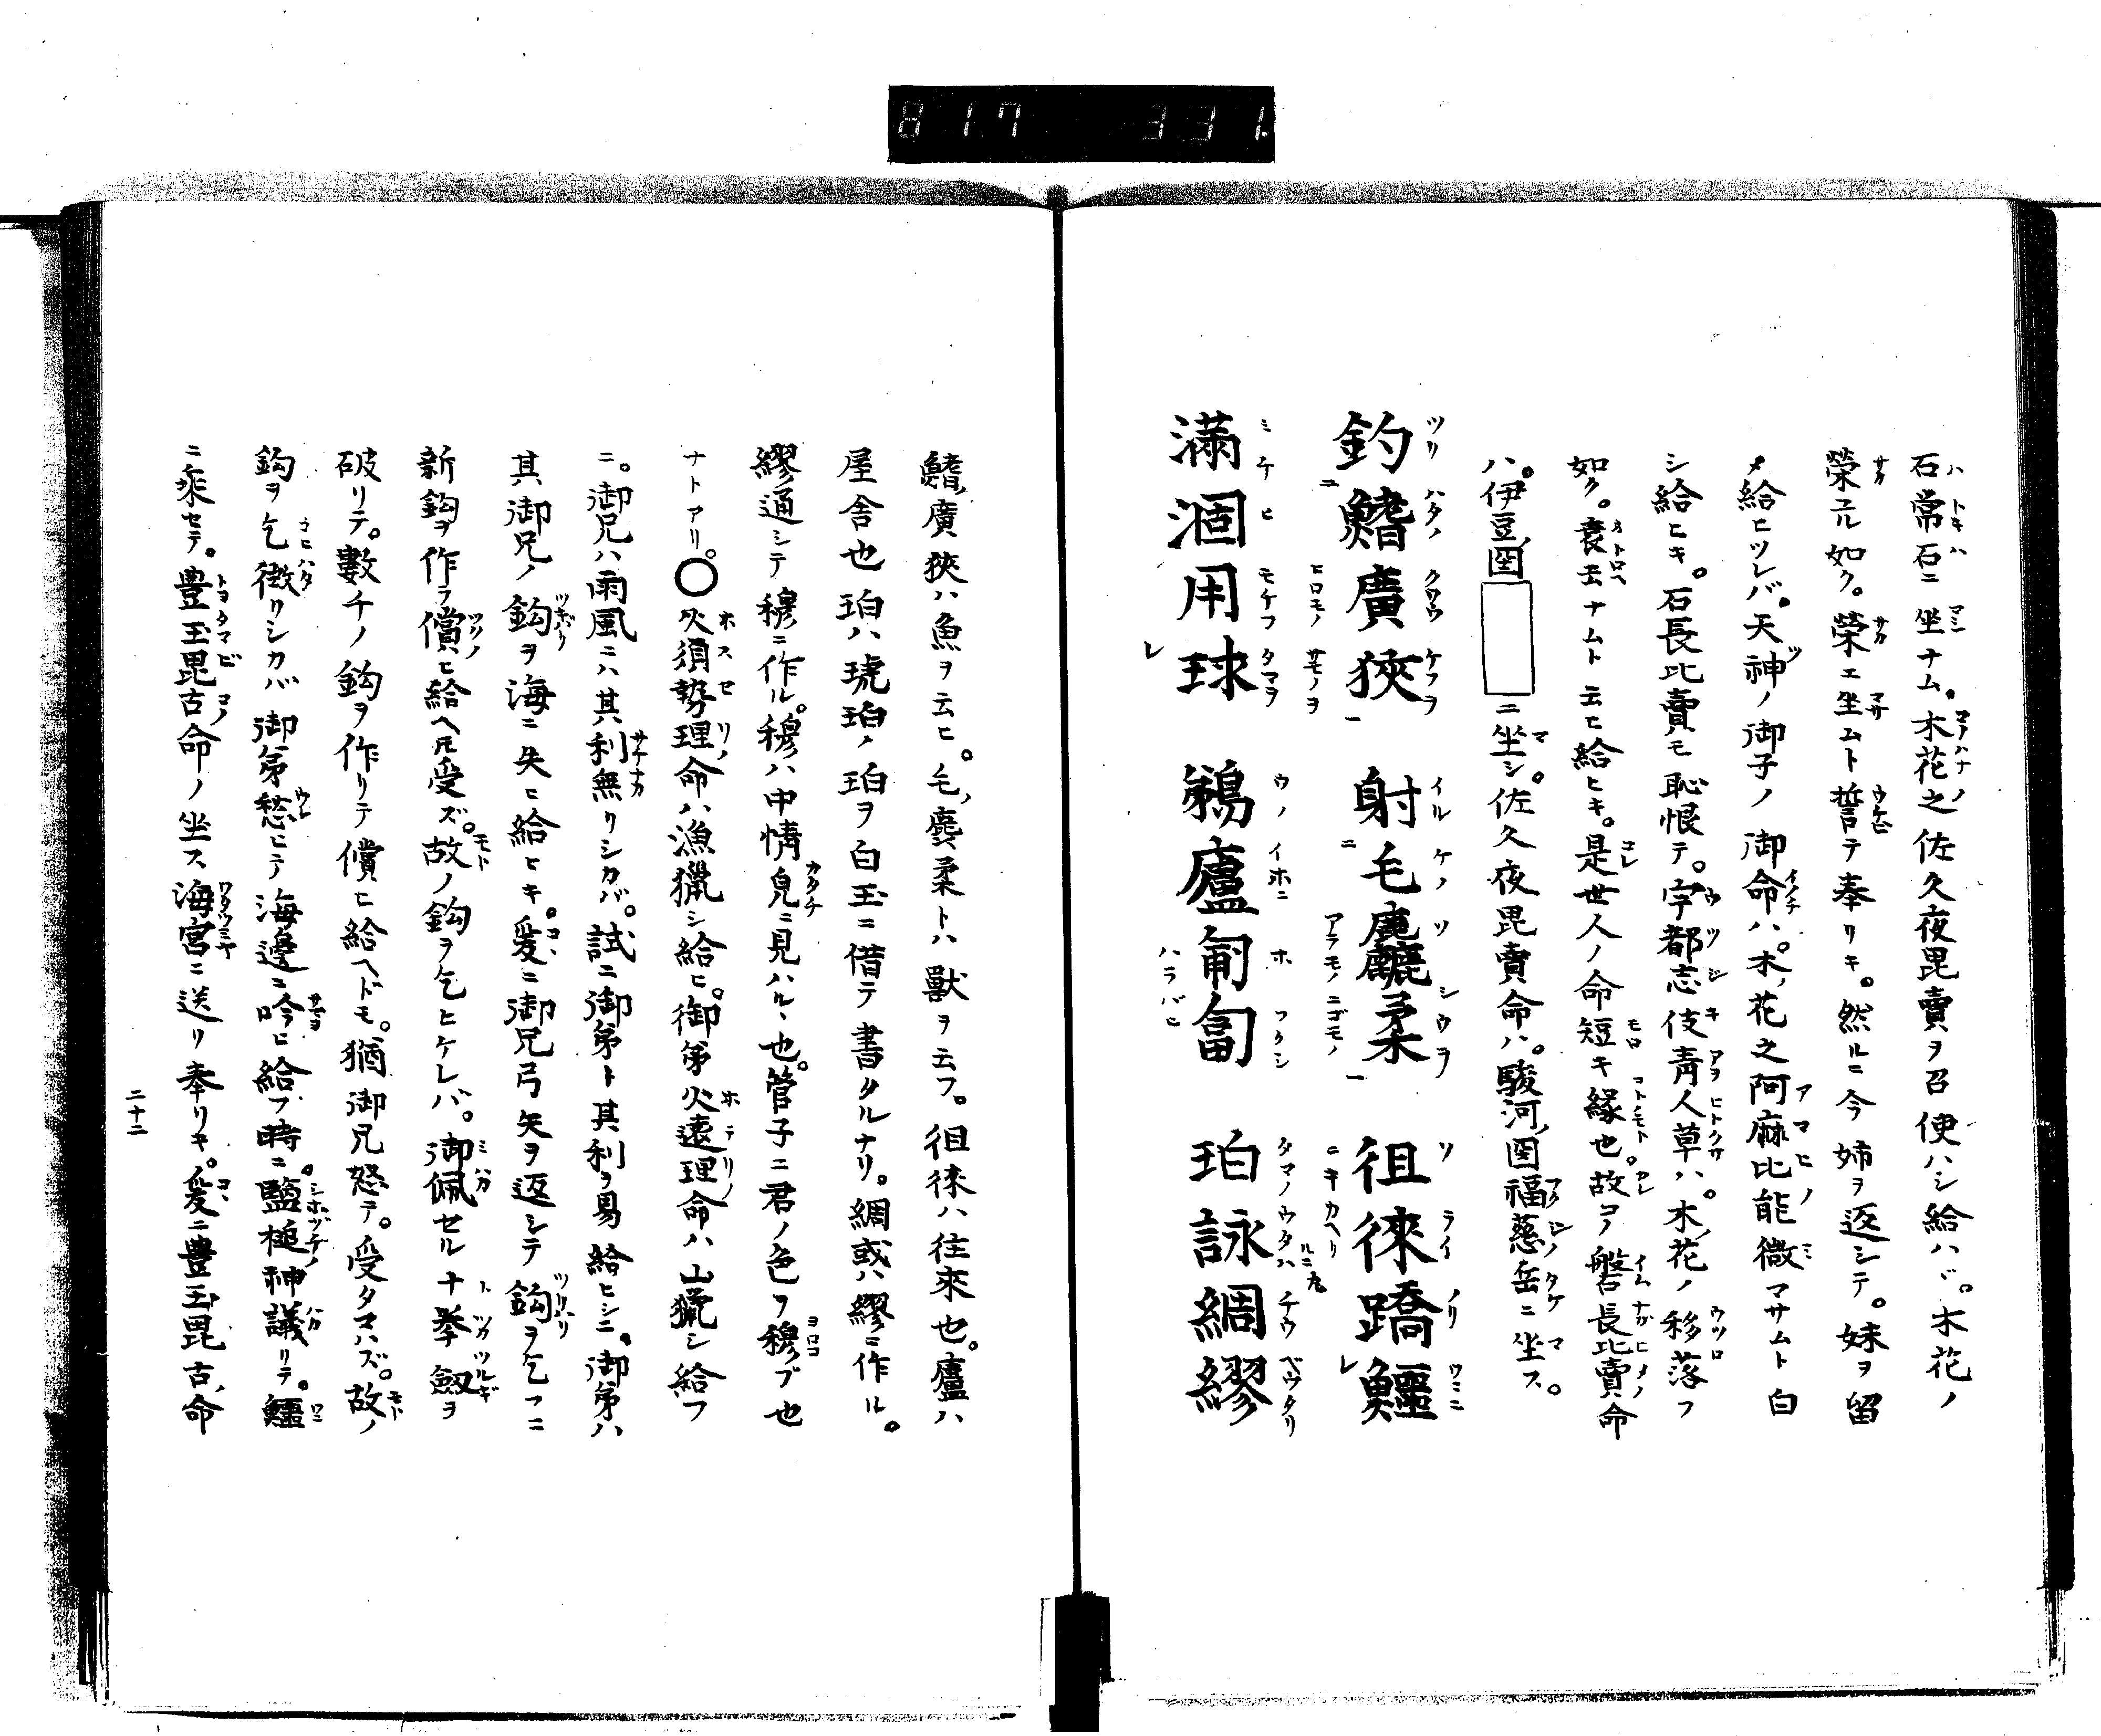 817 331.
石常石ニ坐ナム。木花之佐久夜毘賣ヲ召使ハシ給ハバ。木花ノ
榮ユル如ク。榮エ坐ムト誓テ奉リキ。然ルニ今姉ヲ返シテ。妹ヲ留
メ給ヒツレバ。天神ノ御子ノ御命ハ。木ノ花之阿麻比能微マサムト白
シ給ヒキ。石長比賣モ恥恨テ。宇都志伎青人草ハ。木ノ花ノ移落フ
如ク。衰エナムト云ヒ給ヒキ。是世人ノ命短キ縁也。故コノ磐長比賣ノ命
ハ。伊豆ノ国 ニ坐シ。佐久夜毘賣命ハ。駿河ノ国福慈岳ニ坐ス。
釣鰭廣狹 射毛麁麤柔 徂徠蹻鰐
滿涸用球 鵜廬匍匐 珀詠綢繆
鰭ノ廣狹ハ魚ヲ云ヒ。毛ノ麁柔トハ獸ヲ云フ。徂徠ハ往來也。廬ハ
屋舎也珀ハ琥珀ノ珀ヲ白玉ニ借テ書タルナリ。綢或ハ繆ニ作ル。
繆通シテ穆ニ作ル。穆ハ中情皃ニ見ハルヽ也。管子ニ君ノ色ヲ穆ブ也
ナトアリ。○火須勢理命ハ漁猟シ給ヒ。御弟火遠理命ハ山獵シ給フ
ニ。御兄ハ雨風ニハ其利無リシカバ。試ニ御弟ト其利ヲ易給ヒシニ。御弟ハ
其御兄ノ鈎ヲ海ニ失ヒ給ヒキ。爰ニ御兄弓矢ヲ返シテ鈎ヲ乞フニ
新鈎ヲ作ラ償ヒ給ヘ𪜈受ズ。故ノ鈎ヲ乞ヒケレバ。御佩セル十拳劔ヲ
破リテ。數チノ鈎ヲ作リテ償ヒ給ヘドモ。猶御兄怒テ。受タマハズ。故ノ
鈎ヲ乞徴リシカバ御弟愁ヒテ海邊ニ吟ヒ給フ時ニ。鹽槌神議リテ。鰐
ニ乘セテ。豊玉毘古命ノ坐ス海宮ニ送リ奉リキ。爰ニ豊玉毘古ノ命
二十二